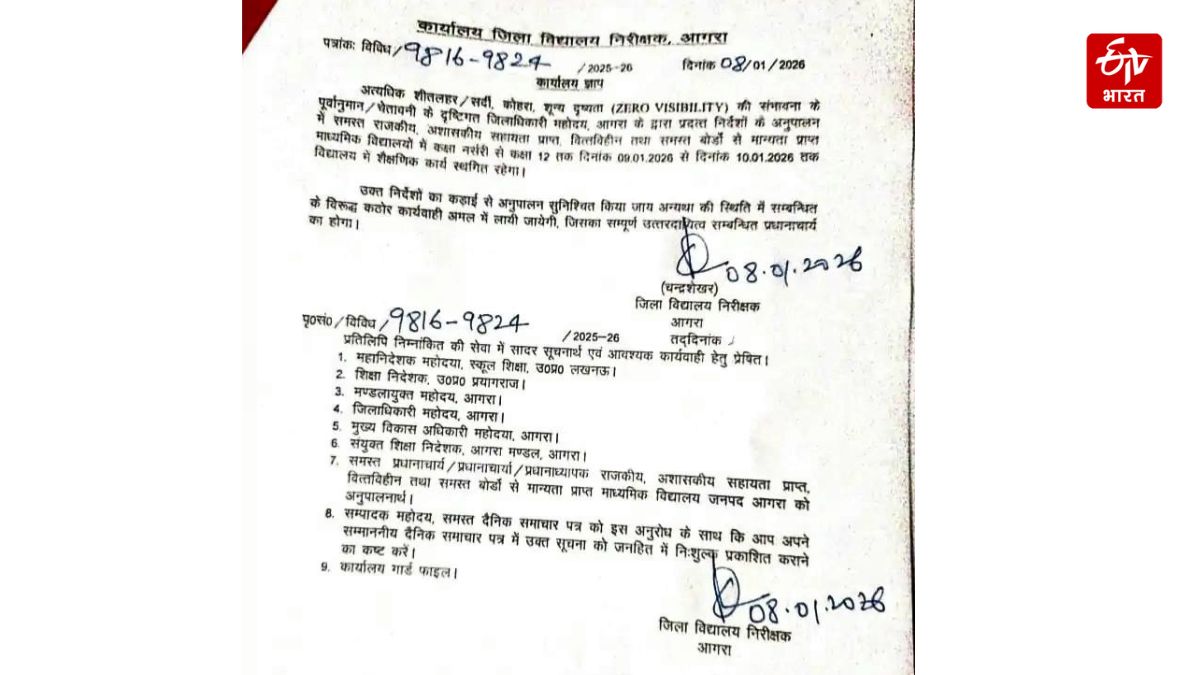 कार्यालय जिला विद्यालय निरीक्षक, आगरा
पत्रांकः विविध/9816-9824 /2025-26 दिनांक 08/01/2026
कार्यालय ज्ञाप
अत्यधिक शीतलहर/सर्दी, कोहरा, शून्य दृष्यता (ZERO VISIBILITY) की संभावना के
पूर्वानुमान/चेतावनी के दृष्टिगत जिलाधिकारी महोदय, आगरा के द्वारा प्रदत्त निर्देशों के अनुपालन
में समस्त राजकीय, अशासकीय सहायता प्राप्त, वित्तविहीन तथा समस्त बोर्डों से मान्यता प्राप्त
माध्यमिक विद्यालयों में कक्षा नर्सरी से कक्षा 12 तक दिनांक 09.01.2026 से दिनांक 10.01.2026 तक
विद्यालय में शैक्षणिक कार्य स्थगित रहेगा।
उक्त निर्देशों का कड़ाई से अनुपालन सुनिश्चित किया जाय अन्यथा की स्थिति में सम्बन्धित
के विरूद्ध कठोर कार्यवाही अमल में लायी जायेगी, जिसका सम्पूर्ण उत्तरदायित्व सम्बन्धित प्रधानाचार्य
का होगा।
08.01.2026
(चन्द्रशेखर)
जिला विद्यालय निरीक्षक
आगरा
पृ0सं0/विविध/9816-9824 /2025-26 तद्दिनांक
प्रतिलिपि निम्नांकित की सेवा में सादर सूचनार्थ एवं आवश्यक कार्यवाही हेतु प्रेषित।
1. महानिदेशक महोदया, स्कूल शिक्षा, उ0प्र0 लखनऊ।
2. शिक्षा निदेशक, उ0प्र0 प्रयागराज।
3. मण्डलायुक्त महोदय, आगरा।
4. जिलाधिकारी महोदय, आगरा।
5. मुख्य विकास अधिकारी महोदया, आगरा।
6. संयुक्त शिक्षा निदेशक, आगरा मण्डल, आगरा।
7. समस्त प्रधानाचार्य/प्रधानाचार्या/प्रधानाध्यापक राजकीय, अशासकीय सहायता प्राप्त,
वित्तविहीन तथा समस्त बोर्डों से मान्यता प्राप्त माध्यमिक विद्यालय जनपद आगरा को
अनुपालनार्थ।
8. सम्पादक महोदय, समस्त दैनिक समाचार पत्र को इस अनुरोध के साथ कि आप अपने
सम्माननीय दैनिक समाचार पत्र में उक्त सूचना को जनहित में निःशुल्क प्रकाशित कराने
का कष्ट करें।
9. कार्यालय गार्ड फाइल।
08.01.2026
जिला विद्यालय निरीक्षक
आगरा
ETV
भारत